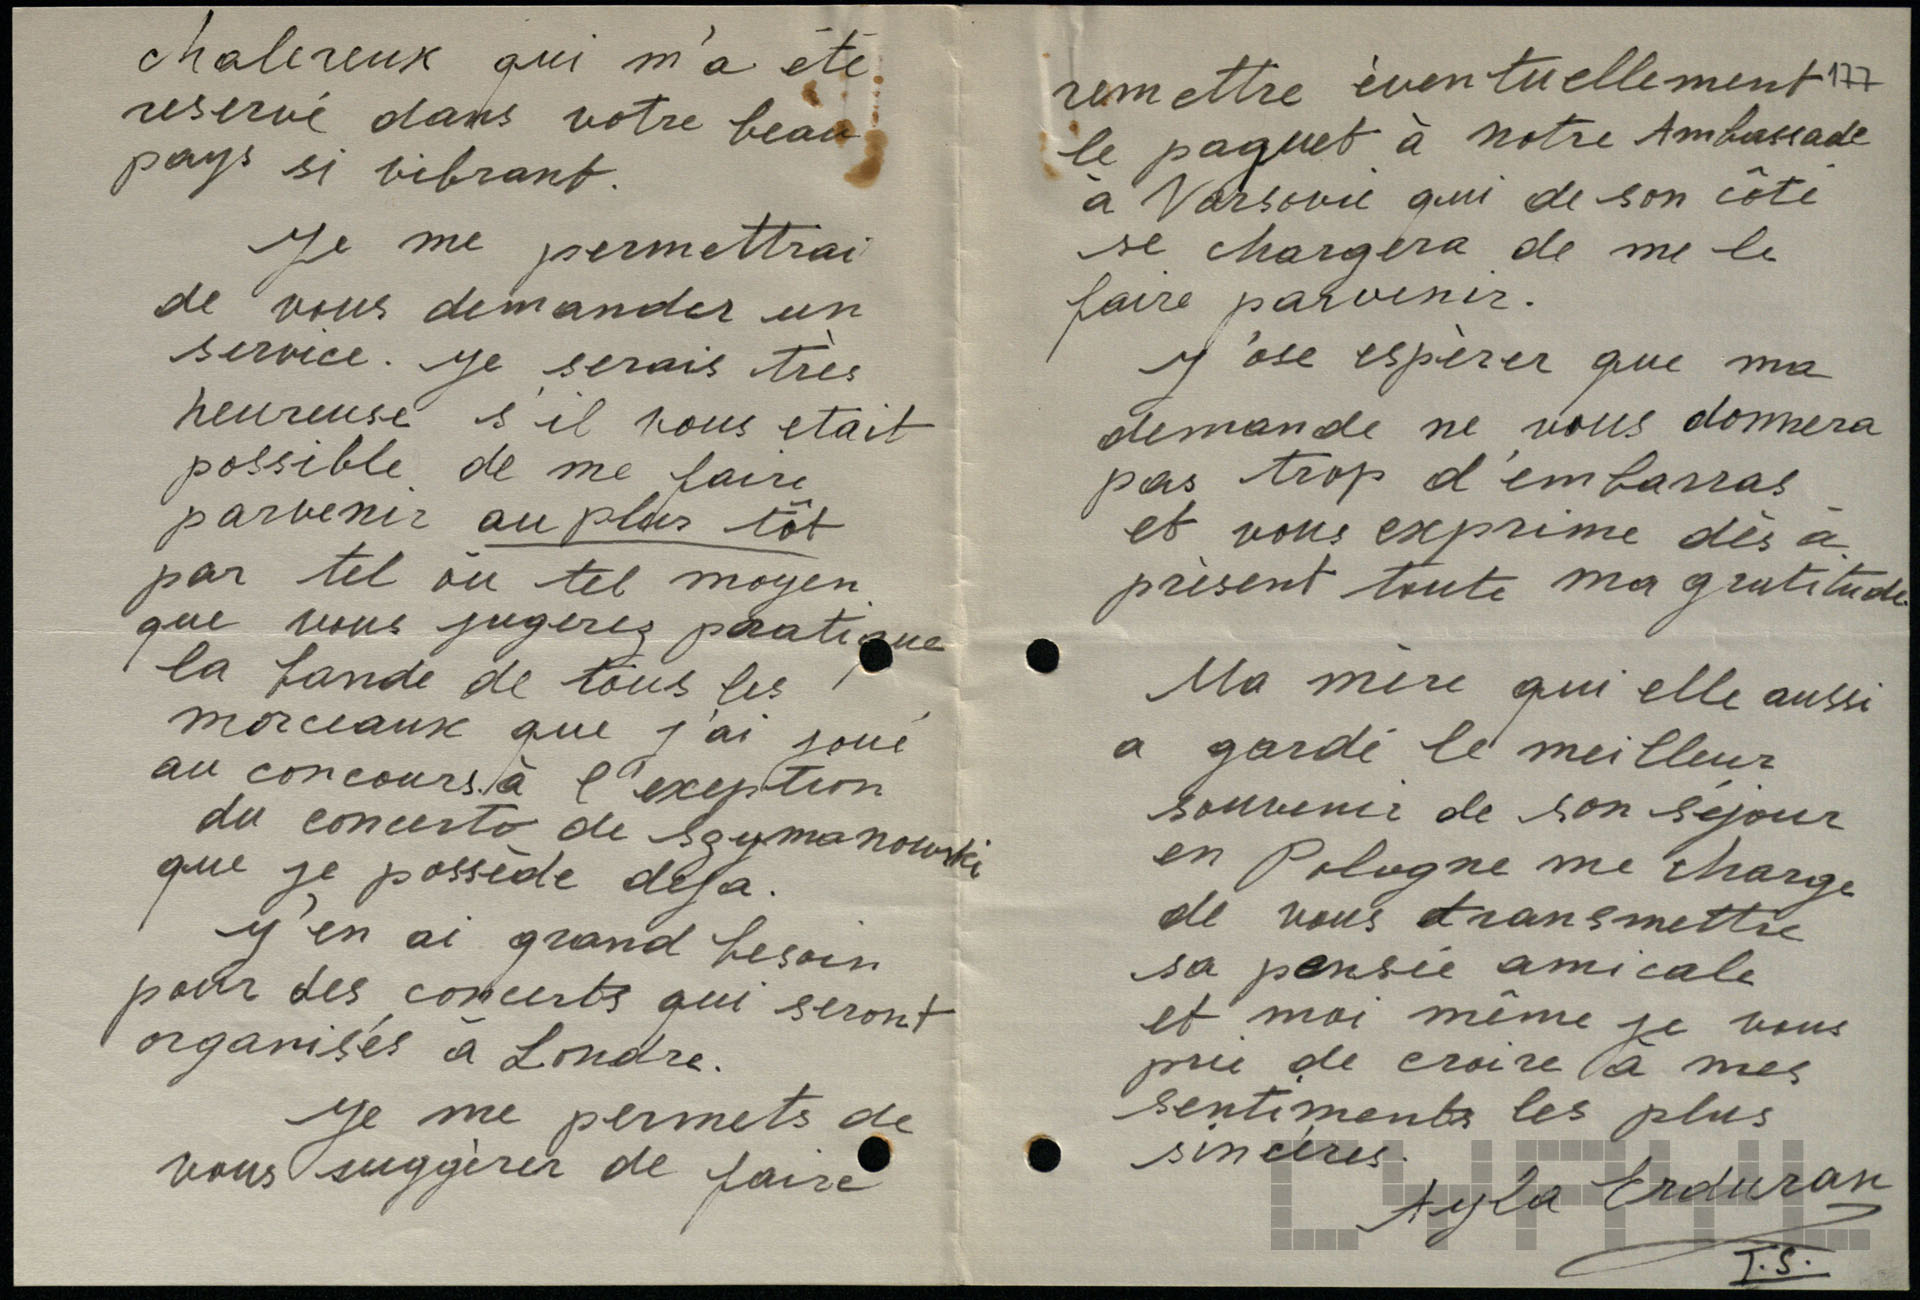 chalereux qui m'a été
reservé dans votre beau
pays si vibrant.
Je me permettrai
de vous demander un
service. Je serais très
heureuse s'il vous etait
possible de me faire
parvenir au plus tôt
par tel òu tel moyen
que vous jugerez pratique
la bande de tous les
morceaux que j'ai joué
au concours à l'exeption
du concerto de Szymanowski
que je possède deja.
J'en ai grand besoin
pour des concerts qui seront
organisés à Londre.
Je me permets de
vous suggèrer de faire
remettre èventuellement
le paquet à notre Ambassade
à Varsovie qui de son côté
se chargera de me le
faire parvenir.
J'ose espèrer que ma
demande ne vous donnera
pas trop d'embarras
et vous exprime dès à
prèsent toute ma gratitude
Ma mère qui elle aussi
a gardé le meilleur
souvenir de son séjour
en Pologne me charge
de vous transmettre
sa pensée amicale
et moi même je vous
prie de croire à mes
sentiments les plus
sincères.
Ayla Erduran
T.S.
177
CYRYL